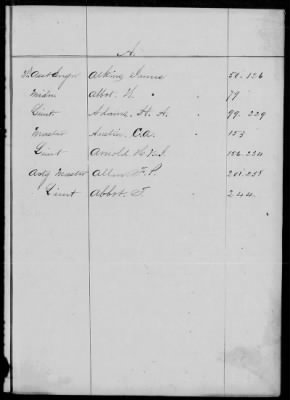 A.
Pr. Asst Surgn Atkins, Francis 50. 126
Midn Abbot W. 79
Lieut Adams, H. A. 99. 229
Master Austin, C.A. 153
Lieut Arnold H. N. T. 186. 234
Actg Master Allen F. P. 201. 258
Lieut Abbot T. 244.